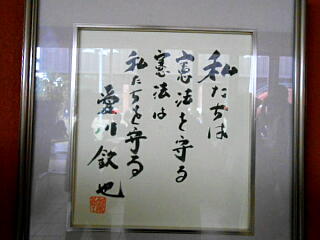 私たちは
憲法を守る
憲法は
私たちを守る
愛川欽也